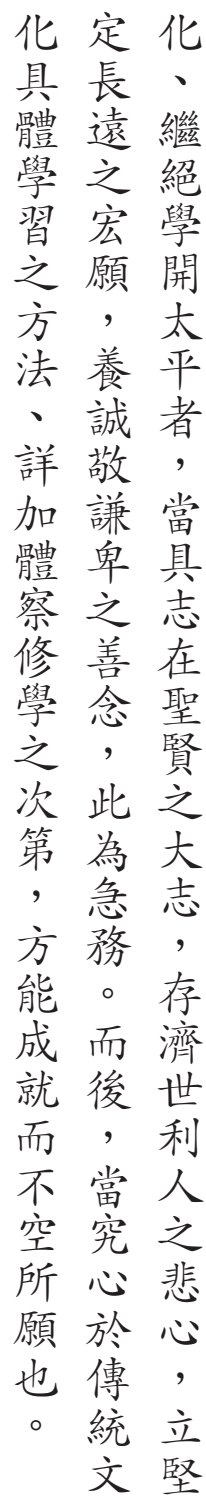 化、繼絕學開太平者，當具志在聖賢之大志，存濟世利人之悲心，立堅
定長遠之宏願，養誠敬謙卑之善念，此為急務。而後，當究心於傳統文
化具體學習之方法、詳加體察修學之次第，方能成就而不空所願也。